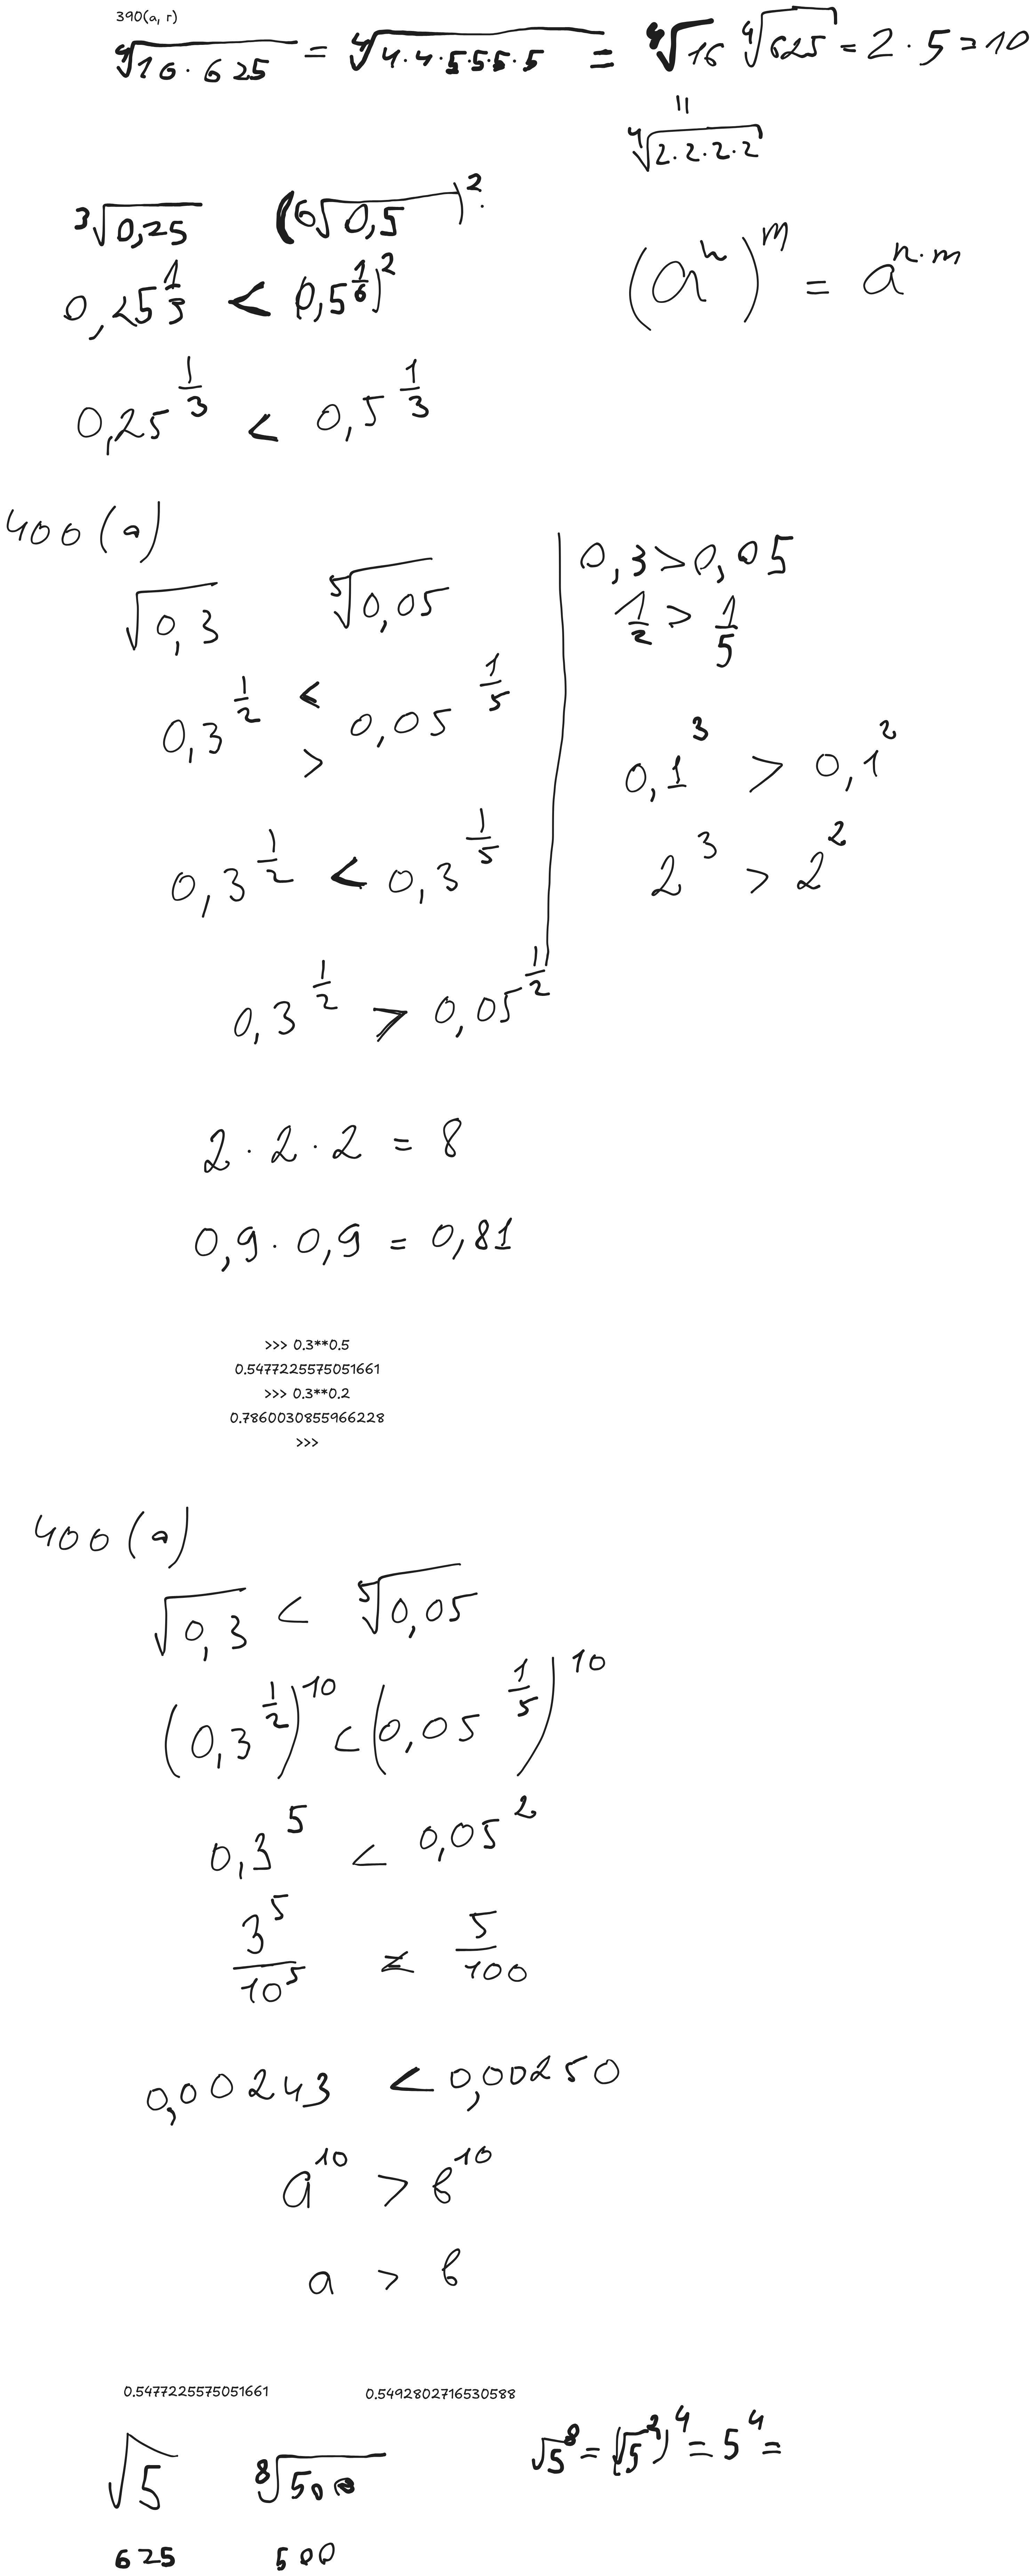 390(a, r)
⁴√16·625 = ⁴√4·4·5·5·5·5 = ⁴√16 ⁴√625 = 2·5=10
||
⁴√2·2·2·2
³√0,25 (⁶√0,5)².
0,25^(1/3) < (0,5^(1/6))²
(aⁿ)^m = a^(n·m)
0,25^(1/3) < 0,5^(1/3)
400(a)
√0,3 ⁵√0,05
0,3^(1/2) < > 0,05^(1/5)
0,3^(1/2) < 0,3^(1/5)
0,3^(1/2) > 0,05^(1/2)
0,3>0,05
1/2 > 1/5
0,1³ > 0,1²
2³ > 2²
2·2·2 = 8
0,9·0,9 = 0,81
>>> 0.3**0.5
0.5477225575051661
>>> 0.3**0.2
0.7860030855966228
>>>
400(a)
√0,3 < ⁵√0,05
(0,3^(1/2))^10 < (0,05^(1/5))^10
0,3⁵ < 0,05²
3⁵/10⁵ 5/100
0,00243 < 0,00250
a^10 > b^10
a > b
0.5477225575051661 0.5492802716530588
√5 ⁸√500
√5⁸ = (√5²)⁴ = 5⁴ =
625 500